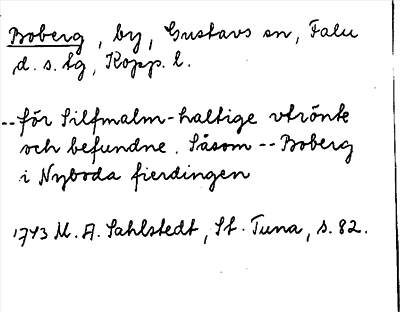 Boberg, by, Gustavs sn, Falu
d. s. lg, Kopp. l.
--för Silfmalm-haltige vtrönte
och befundne. Såsom -- Boberg
i Nyboda fierdingen
1743 M. A. Sahlstedt, St. Tuna, s. 82.